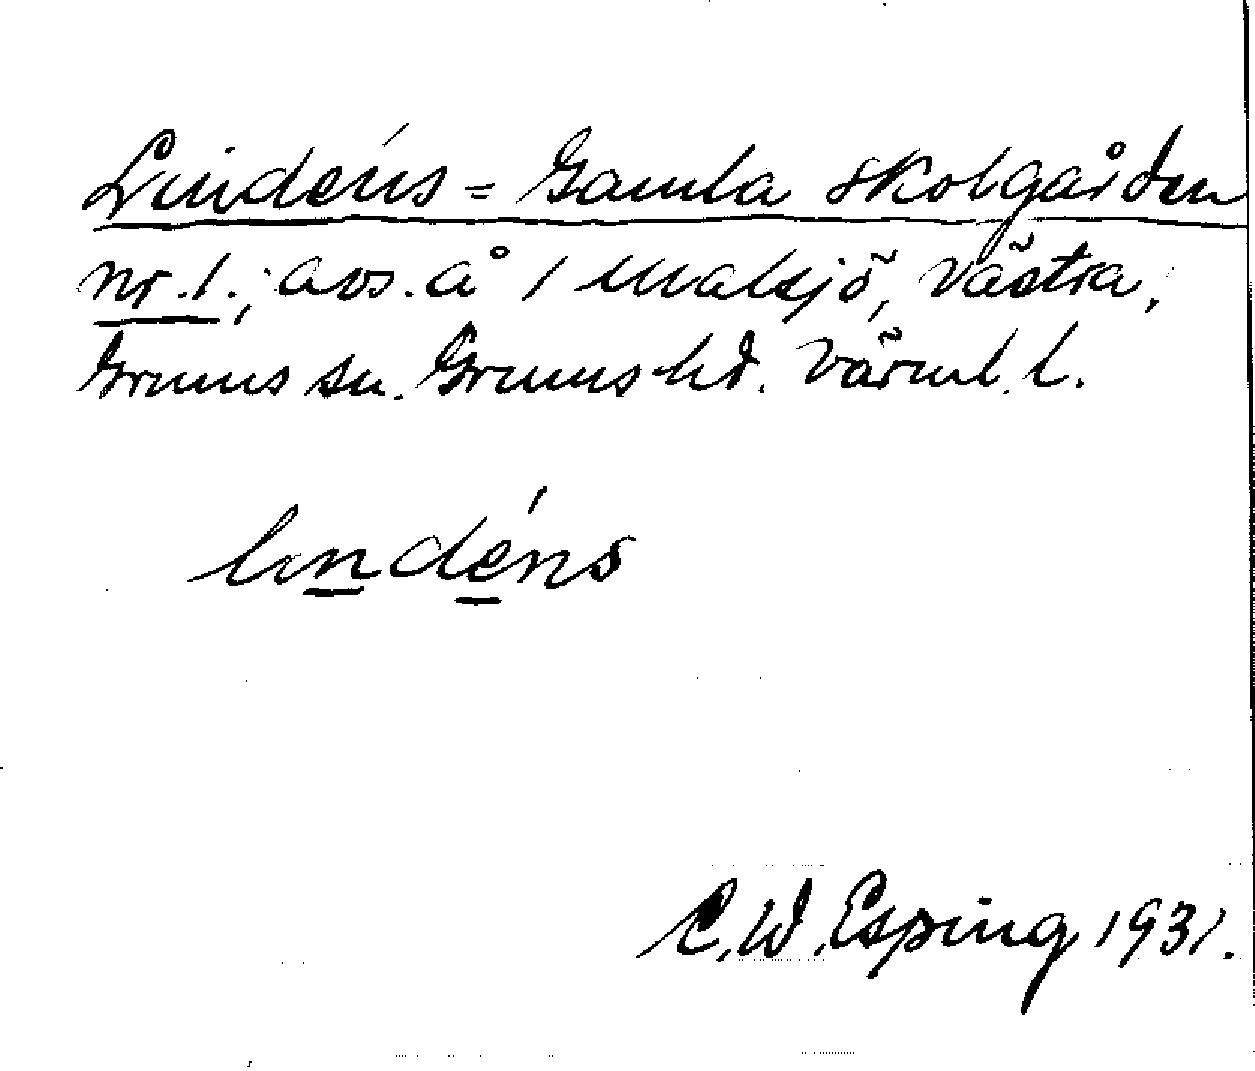 Lindéns = Gamla skolgården
nr. 1.; avs. å 1 Malsjö, Västra,
Grums sn. Grums hd. Värml. l.
lindéns
C. W. Esping 1931.